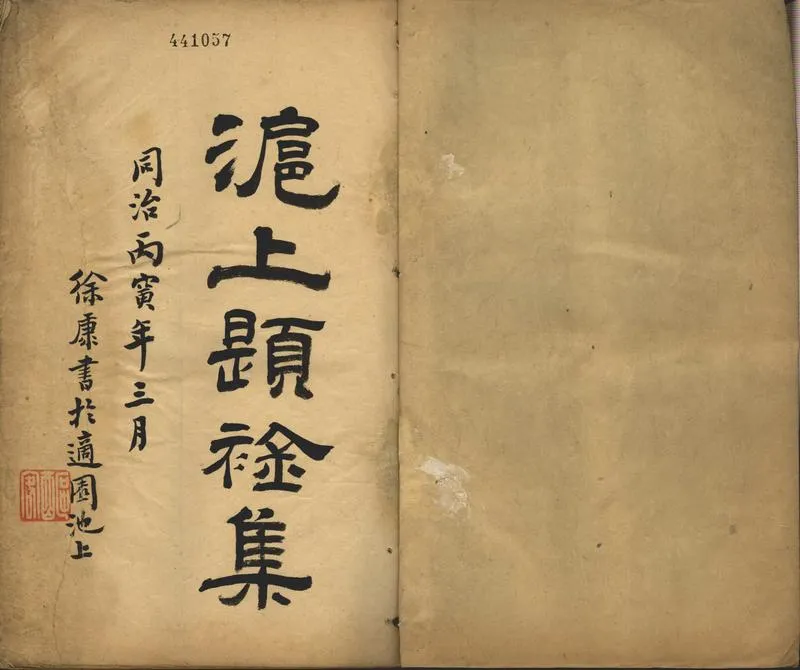 441057
滬上題䘳集
同治丙寅年三月
徐康書於適園池上